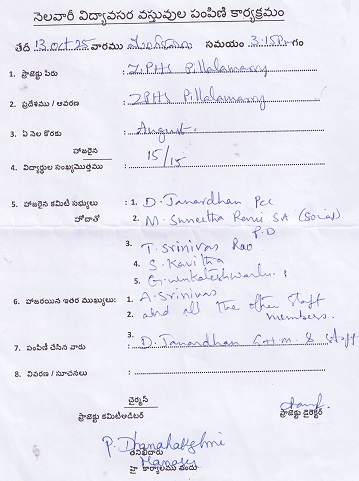 నెలవారీ విద్యావసర వస్తువుల పంపిణి కార్యక్రమం
తేదీ 13 oct 25 వారము మంగళవారం సమయం 3:15Pm గం
1. ప్రాజెక్టు పేరు : ZPHS Pillalamarry
2. ప్రదేశము / ఆవరణ : ZPHS Pillalamarry
3. ఏ నెల కొరకు : August.
4. హాజరైన విద్యార్థుల సంఖ్య/మొత్తము : 15/15
5. హాజరైన కమిటీ సభ్యులు హోదాతో : 1. D. Janardhan
2. M. Suneetha Rani SA (Social) P.D
3. T. Srinivas Rao
4. S. Kavitha
5. G. Venkateshwarlu
6. హాజరయిన ఇతర ముఖ్యులు: 1. A. Srinivas
2. and all the other staff members.
3.
7. పంపిణి చేసిన వారు : D. Janardhan G.H.M. & Staff
8. వివరణ / సూచనలు :
చైర్మన్
ప్రాజెక్టు కమిటీఆడిటర్
ప్రాజెక్టు డైరెక్టర్
P. Dhanalakshmi
Manager
తనిఖీదారు
హై కార్యాలయము నందు